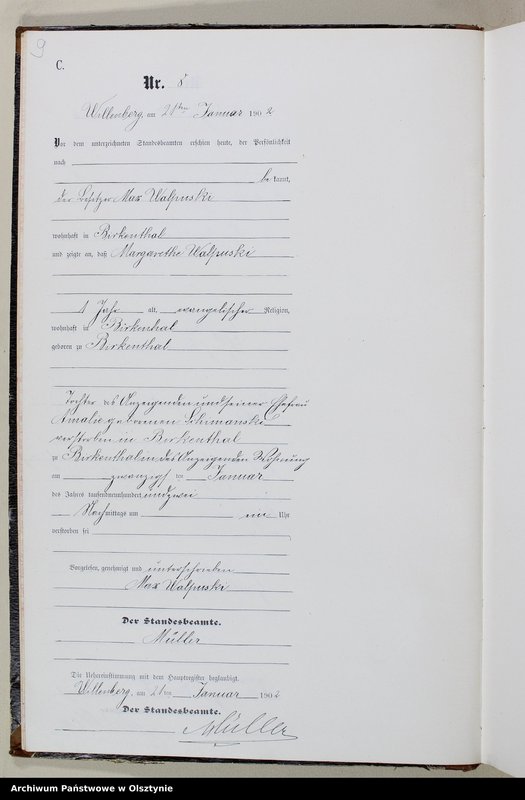 9
C.
Nr. 8
Willenberg, am 21ten Januar 1902
Vor dem unterzeichneten Standesbeamten erschien heute, der Persönlichkeit
nach
bekannt,
der Besitzer Max Walpuski
wohnhaft in Birkenthal
und zeigte an, daß Margarethe Walpuski
1 Jahr alt, evangelischer Religion,
wohnhaft in Birkenthal
geboren zu Birkenthal
Tochter des Anzeigenden und seiner Ehefrau
Amalie geborenen
verstorben in Birkenthal
zu Birkenthal in des Anzeigenden Wohnung
am zwanzigsten Januar
des Jahres tausendneunhundert und zwei
Nachmittags um ein Uhr
verstorben sei
Vorgelesen, genehmigt und unterschrieben
Max Walpuski
Der Standesbeamte.
Müller
Die Uebereinstimmung mit dem Hauptregister beglaubigt.
Willenberg, am 21ten Januar 1902
Der Standesbeamte.
Müller
Archiwum Państwowe w Olsztynie